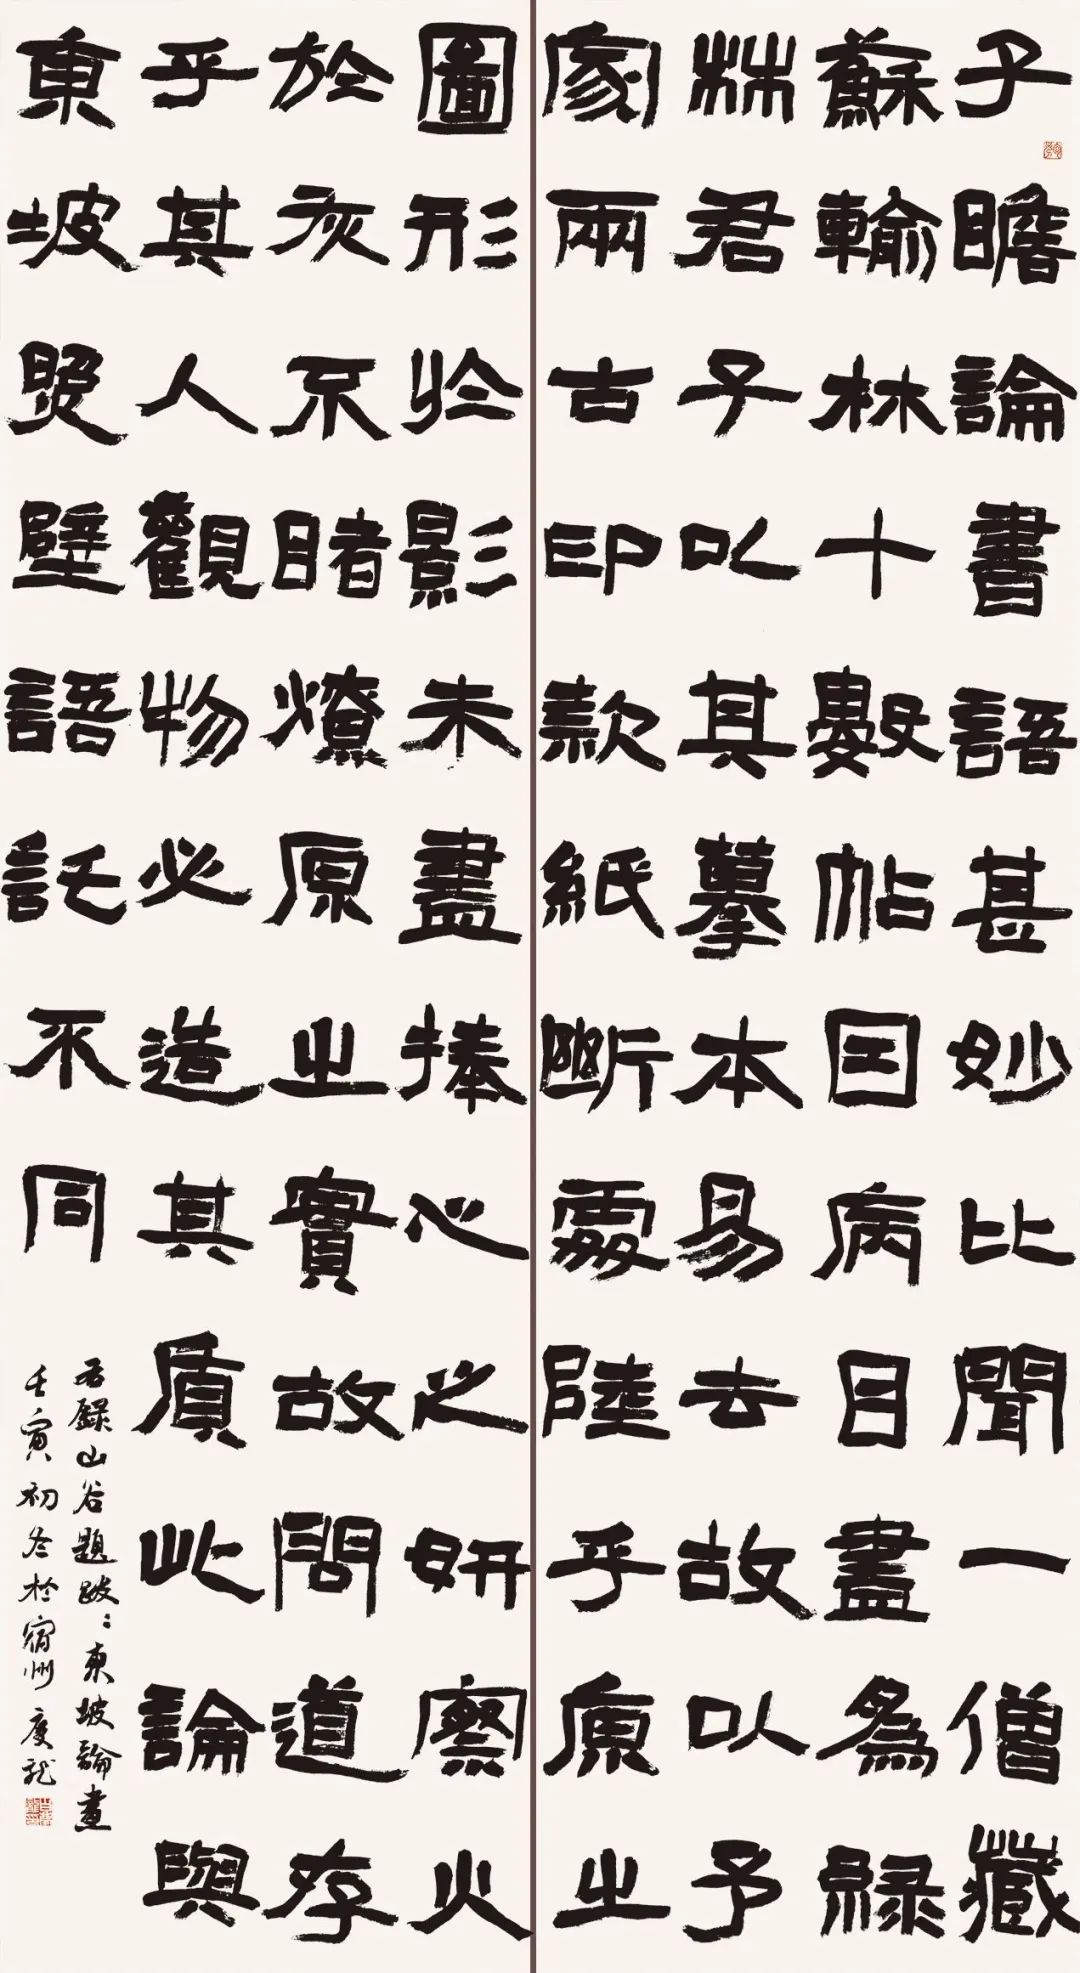 子瞻論書語甚妙比聞一僧藏
蘇輸林十數帖因病目盡為緑
林君子以其摹本易去故以予
家兩古印款紙斷處陸平原之
圖形於影未盡捧心之妍察火
於灰不睹燎原之實故問道存
乎其人觀物必造其質此論與
東坡照壁語託不同
右録山谷題跋〻東坡論畫
壬寅初冬於宿州度龍